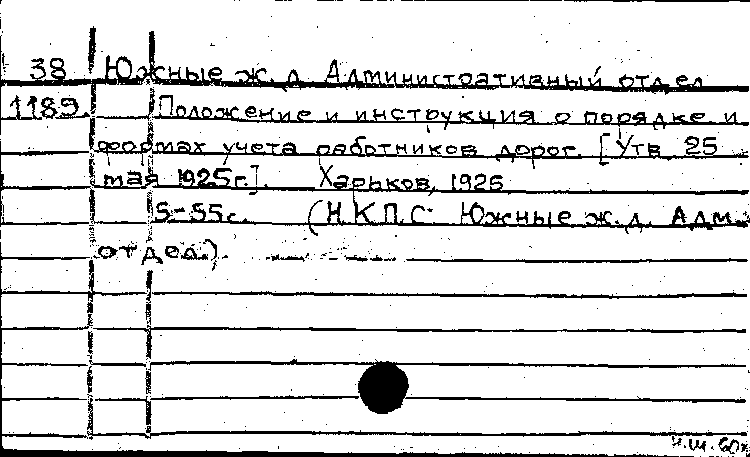 38 Южные ж. д. Административный отдел
1189. Положение и инструкция о порядке и
формах учета работников дорог. [Утв. 25
мая 1925г.]. Харьков, 1925.
5-55с. (Н.К.П.С. Южные ж.д. Адм.
отдел.).